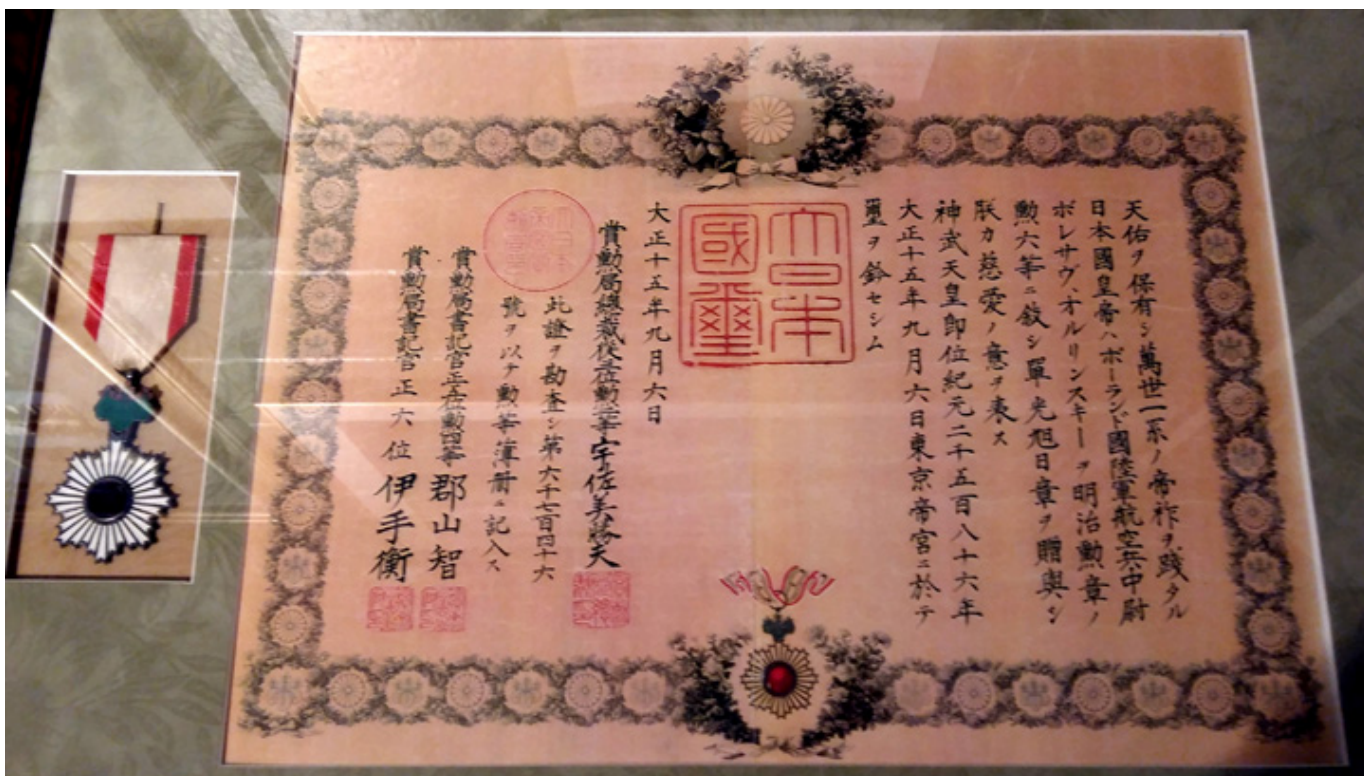 天佑ヲ保有シ萬世一系ノ帝祚ヲ踐タル
日本國皇帝ハポーランド國陸軍航空兵中尉
ボレサヴ、オルリンスキーヲ明治勲章ノ
勲六等ニ敍シ單光旭日章ヲ贈與シ
朕カ慈愛ノ意ヲ表ス
神武天皇即位紀元二千五百八十六年
大正十五年九月六日東京帝宮ニ於テ
璽ヲ鈐セシム
大日本
國璽
大正十五年九月六日
賞勲局總裁從三位勲二等宇佐美勝夫
此證ヲ勘査シ第六千七百四十六
號ヲ以テ勲等簿册ニ記入ス
賞勲局書記官正五位勲四等 郡山智
賞勲局書記官正六位 伊手衡